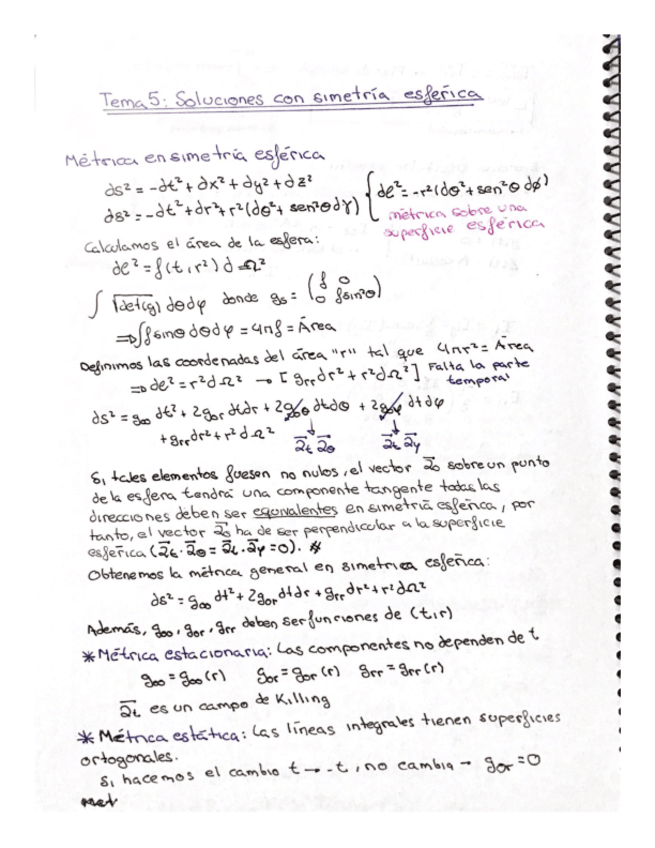 Tema 5: Soluciones con simetría esférica
Métrica en simetría esférica
ds² = -∂t² + ∂x² + dy² + dz²
ds² = -∂t² + dr² + r²(dθ² + sen²θdγ) { dl² = -r²(dθ² + sen²θ dφ)
métrica sobre una
superficie esférica
Calculamos el área de la esfera:
dl² = f(t, r²) d Ω²
∫ √|det(g)| dθdφ donde gs = (f 0
0 fsin²θ)
⇒ ∫∫ f sinθ dθdφ = 4πf = Área
Definimos las coordenadas del área "r" tal que 4πr² = Área
⇒ dl² = r²dΩ² → [grr dr² + r²dΩ²] Falta la parte
temporal
ds² = g₀₀ dt² + 2g₀r dtdr + 2g₀θ dtdθ + 2g₀φ dtdφ
+ grr dr² + r² dΩ²
∂t ∂θ ∂t ∂γ
Si tales elementos fuesen no nulos, el vector ∂₀ sobre un punto
de la esfera tendrá una componente tangente todas las
direcciones deben ser equivalentes en simetría esférica, por
tanto, el vector ∂₀ ha de ser perpendicular a la superficie
esférica (∂t·∂θ = ∂t·∂γ = 0). *
Obtenemos la métrica general en simetrica esférica:
ds² = g₀₀ dt² + 2g₀r dtdr + grr dr² + r²dΩ²
Además, g₀₀, g₀r, grr deben ser funciones de (t,r)
* Métrica estacionaria: Las componentes no dependen de t
g₀₀ = g₀₀(r) g₀r = g₀r(r) grr = grr(r)
∂t es un campo de Killing
* Métrica estática: Las líneas integrales tienen superficies
ortogonales.
Si hacemos el cambio t → -t, no cambia → g₀r = 0